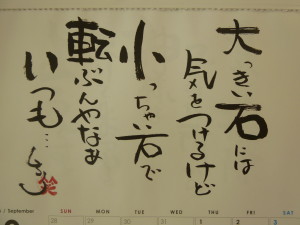 大っきい石には
気をつけるけど
小っちゃい石で
転ぶんやなぁ
いつも…
笑
/ September
SUN MON TUE WED THU FRI SAT
28 29 30 31 1 2 3